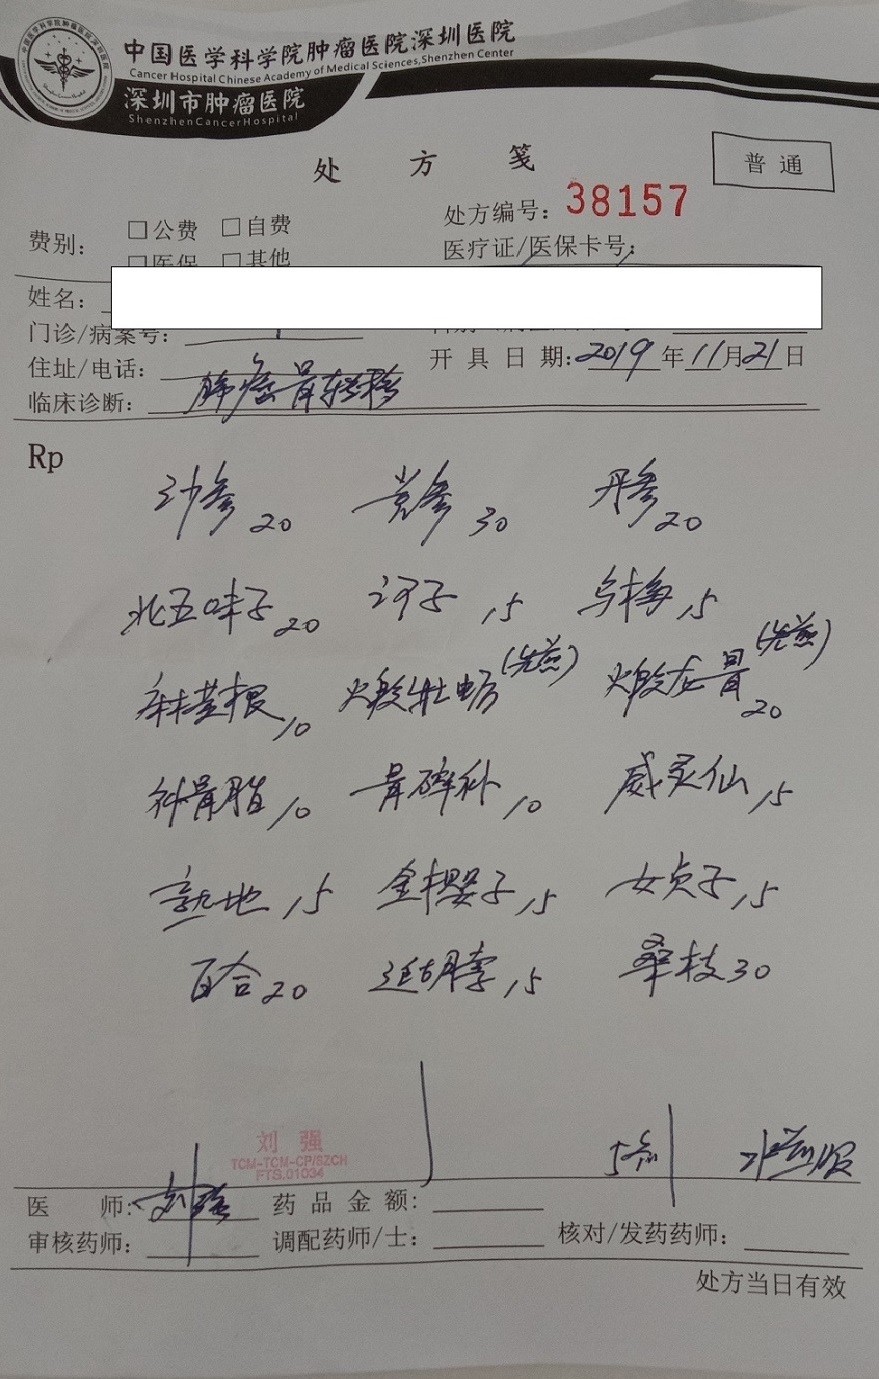 中国医学科学院肿瘤医院深圳医院
Cancer Hospital Chinese Academy of Medical Sciences, Shenzhen Center
深圳市肿瘤医院
Shenzhen Cancer Hospital
处 方 笺
普 通
处方编号: 38157
费别: □公费 □自费
医疗证/医保卡号:
□医保 □其他
姓名:
门诊/病案号:
住址/电话:
开 具 日 期: 2019 年 11 月 21 日
临床诊断: 肺癌骨转移
Rp
沙参 20 党参 30 丹参 20
北五味子 20 诃子 15 乌梅 15
麻黄根 10 煅牡蛎 (先煎) 煅龙骨 20 (先煎)
补骨脂 10 骨碎补 10 威灵仙 15
熟地 15 金樱子 15 女贞子 15
百合 20 延胡索 15 桑枝 30
5剂 水煎服
刘 强
TCM-TCM-CP/SZCH
FTS.01034
医 师: 刘强 药 品 金 额:
审核药师: 调配药师/士: 核对/发药药师:
处方当日有效